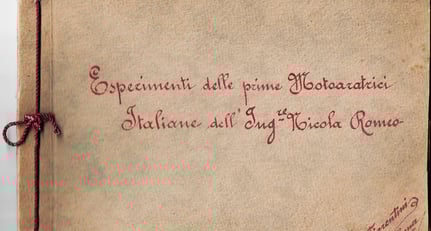 Esperimenti delle prime Motoaratrici
Italiane dell'Ing.re Nicola Romeo